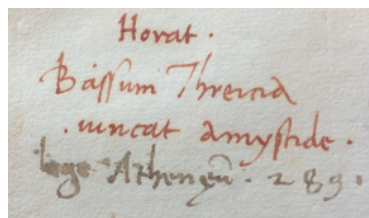 Horat.
Bassum Threicia
.vincat amystide.
lege Atheneū. 289.